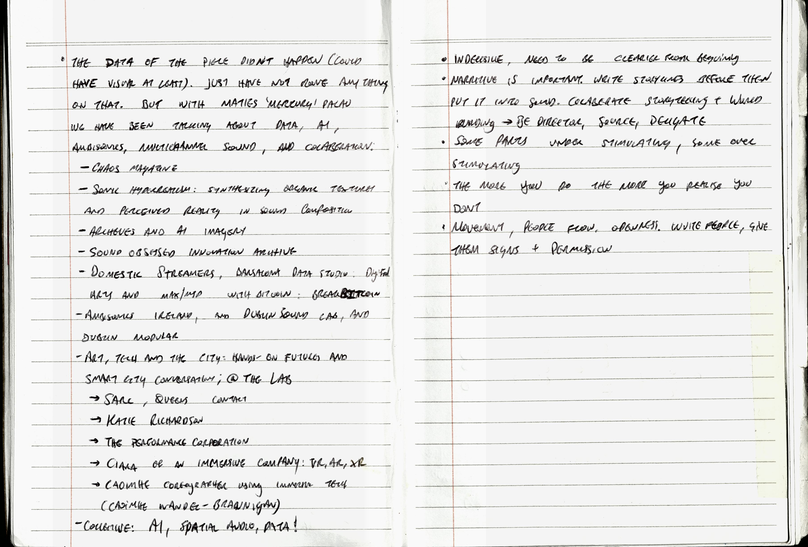 • THE DATA OF THE PIECE DIDN'T HAPPEN (COULD
HAVE VISUAL AT LEAST). JUST HAVE NOT DONE ANYTHING
ON THAT. BUT WITH MATIES 'MERCURY'
WE HAVE BEEN TALKING ABOUT DATA, AI,
AMBISONICS, MULTICHANNEL SOUND, AND COLLABORATION.
- CHAOS MAGAZINE
- SONIC HYPERREALISM: SYNTHESIZING ORGANIC TEXTURES
AND PERCEIVED REALITY IN SOUND COMPOSITION
- ARCHIEVES AND AI IMAGERY
- SOUND OBSESSED INNOVATION ARCHIVE
- DOMESTIC STREAMERS, BARSALONA DATA STUDIO. Digital
ARTS AND MAX/MSP WITH BITCOIN:
- AMBISONICS IRELAND, AND DUBLIN SOUND LAB, AND
DUBLIN MODULAR
- ART, TECH AND THE CITY: HANDS-ON FUTURES AND
SMART CITY CONVERSATION; @ THE LAB
→ SARC, QUEENS CONTACT
→ KATIE RICHARDSON
→ THE PERFORMANCE CORPORATION
→ CIARA OF AN IMMERSIVE COMPANY: VR, AR, XR
→ CAOIMHE COREOGRAPHER using IMMERSIVE TECH
(CAOIMHE WANDEL-BRANNIGAN)
- COLLECTIVE: AI, SPATIAL AUDIO, DATA!
• INDECISIVE, NEED TO BE CLEARER FROM BEGINNING
• NARRITIVE IS IMPORTANT. WRITE STORYLINES BEFORE THEN
PUT IT INTO SOUND. COLABERATE STORYTELLING + WORLD
BUILDING → BE DIRECTOR, SOURCE, DELIGATE
• SOME PARTS UNDER STIMULATING, SOME OVER
STIMULATING
• THE MORE YOU DO THE MORE YOU REALISE YOU
DONT
• MOVEMENT, PEOPLE FLOW. OPENNESS. INVITE PEOPLE, GIVE
THEM SIGNS + PERMISSION